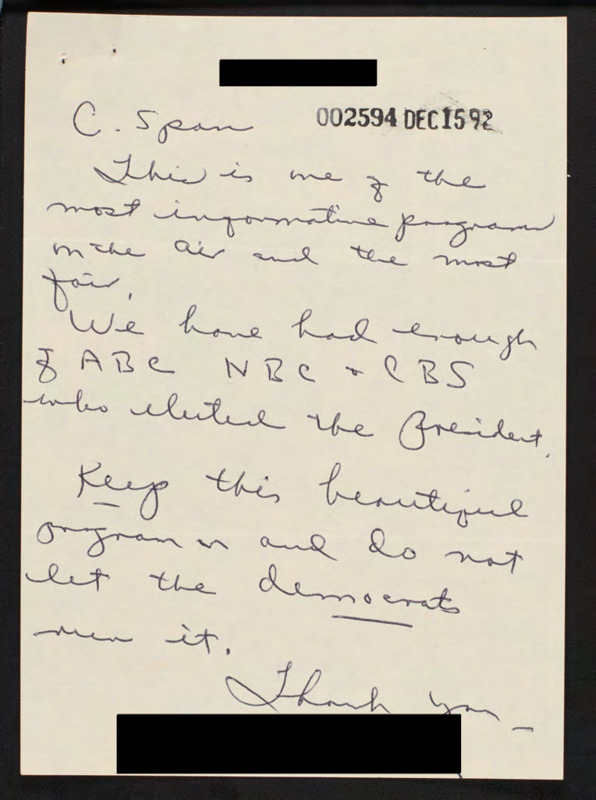 C. Span
002594 DEC 15 92
This is one of the
most informative programs
on the air and the most
fair.
We have had enough
of ABC NBC + CBS
who elected the President.
Keep this beautiful
program on and do not
let the democrats
run it.
Thank you —